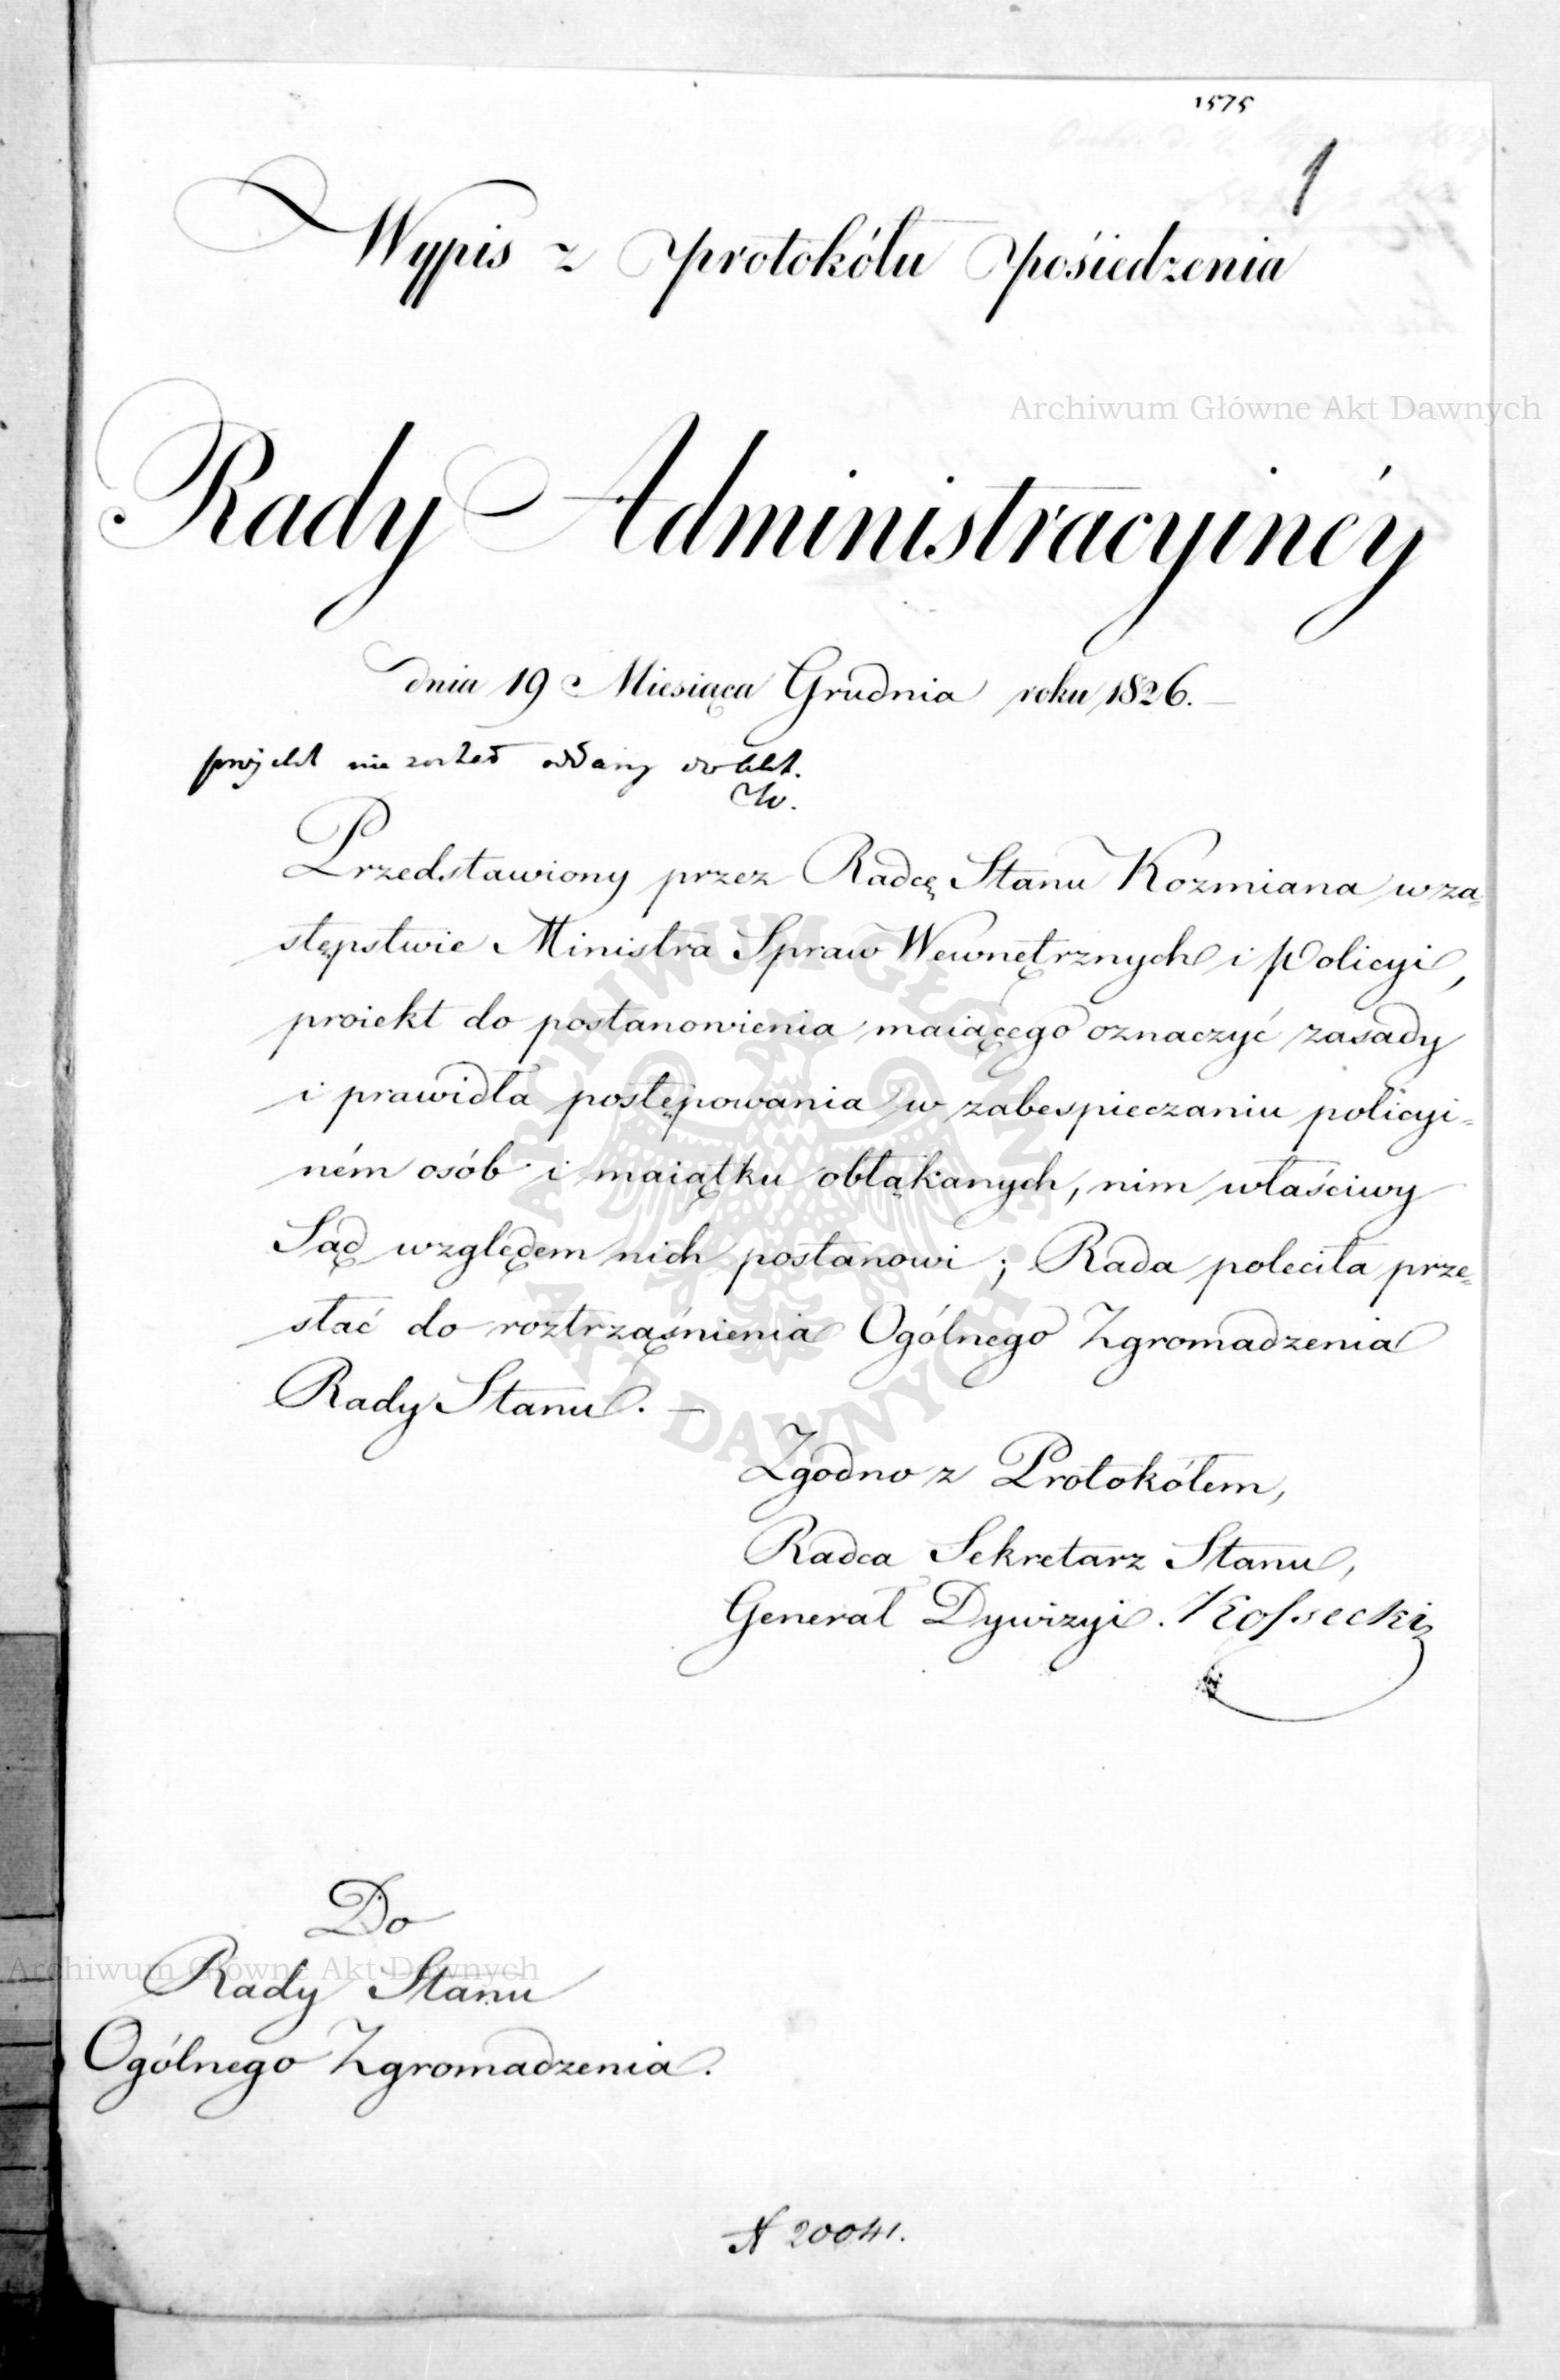 1575
1
Wypis z protokółu pośiedzenia
Archiwum Główne Akt Dawnych
Rady Administracyinéy
dnia 19 Miesiąca Grudnia roku 1826.
projekt nie został oddany do akt.
Przedstawiony przez Radcę Stanu Kozmiana w za=
stępstwie Ministra Spraw Wewnętrznych i Policyi,
proiekt do postanowienia maiącego oznaczyć zasady
i prawidła postępowania w zabespieczaniu policyi=
ném osób i maiątku obłąkanych, nim właściwy
Sąd względem nich postanowi; Rada poleciła prze=
słać do roztrząśnienia Ogólnego Zgromadzenia
Rady Stanu. —
ARCHIWUM GŁÓWNE AKT DAWNYCH
Zgodno z Protokółem,
Radca Sekretarz Stanu,
Generał Dywizyi. Kossecki
Do
Archiwum Główne Akt Dawnych
Rady Stanu
Ogólnego Zgromadzenia.
N 20041.